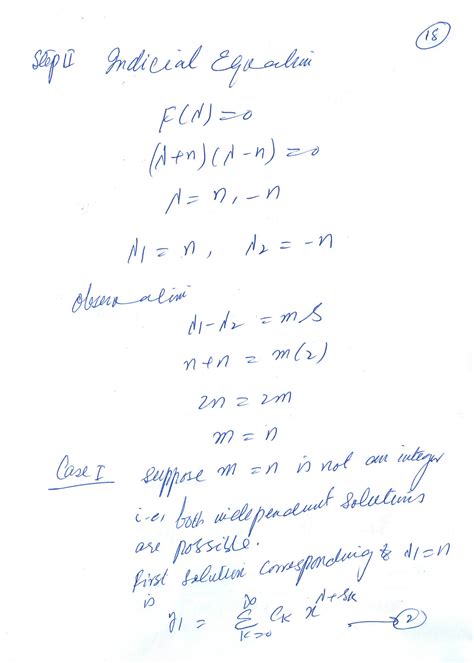 18
Step II Indicial Equation
F(λ) = 0
(λ+n)(λ-n) = 0
λ = n, -n
λ1 = n, λ2 = -n
Observation
λ1-λ2 = mS
n+n = m(2)
2n = 2m
m = n
Case I suppose m = n is not an integer
i.e, both independent solutions
are possible.
First solution corresponding to λ1 = n
is
y1 = ∞ Σ k=0 Ck x^λ+Sk — 2